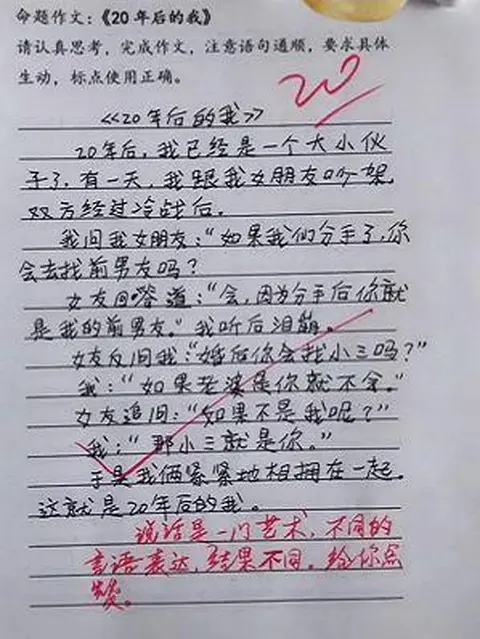 命题作文：《20年后的我》
请认真思考，完成作文，注意语句通顺，要求具体
生动，标点使用正确。
20
《20年后的我》
20年后，我已经是一个大小伙
子了，有一天，我跟我女朋友吵架，
双方经过冷战后，
我问我女朋友：“如果我们分手了，你
会去找前男友吗？
女友回答道：“会，因为分手后你就
是我的前男友。”我听后泪崩。
女友反问我：“婚后你会找小三吗？”
我：“如果老婆是你就不会。”
女友追问：“如果不是我呢？”
我：“那小三就是你。”
于是我俩紧紧地相拥在一起。
这就是20年后的我。
说话是一门艺术，不同的
言语表达，结果不同。给你点
赞。